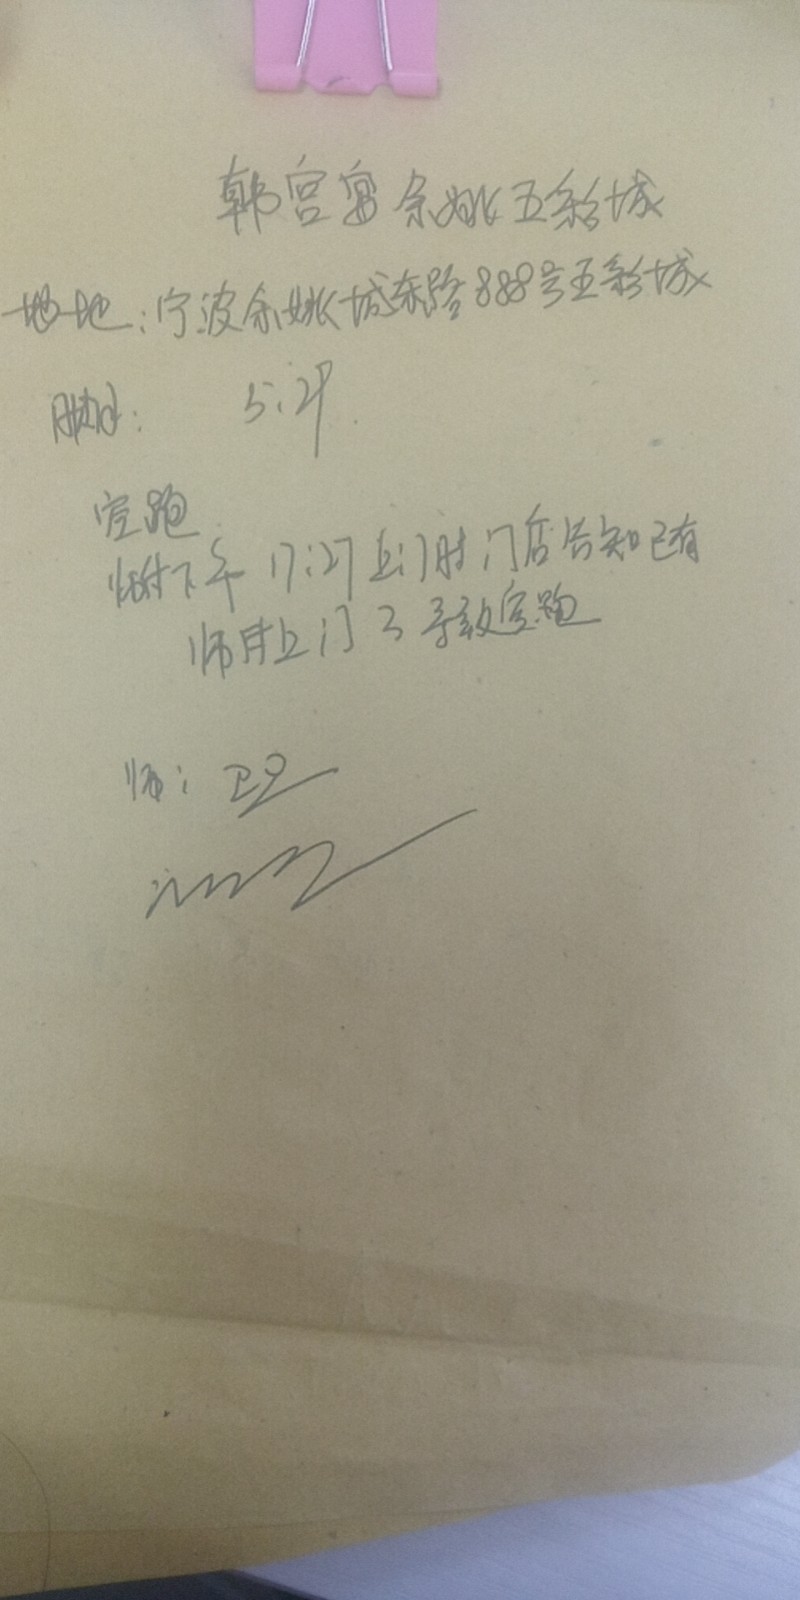 韩宫宴余姚五彩城
地地:宁波余姚城东路888号五彩城
时间: 5.29.
空跑
师傅下午17:27上门时门店告知已有
师傅上门了导致空跑
师: